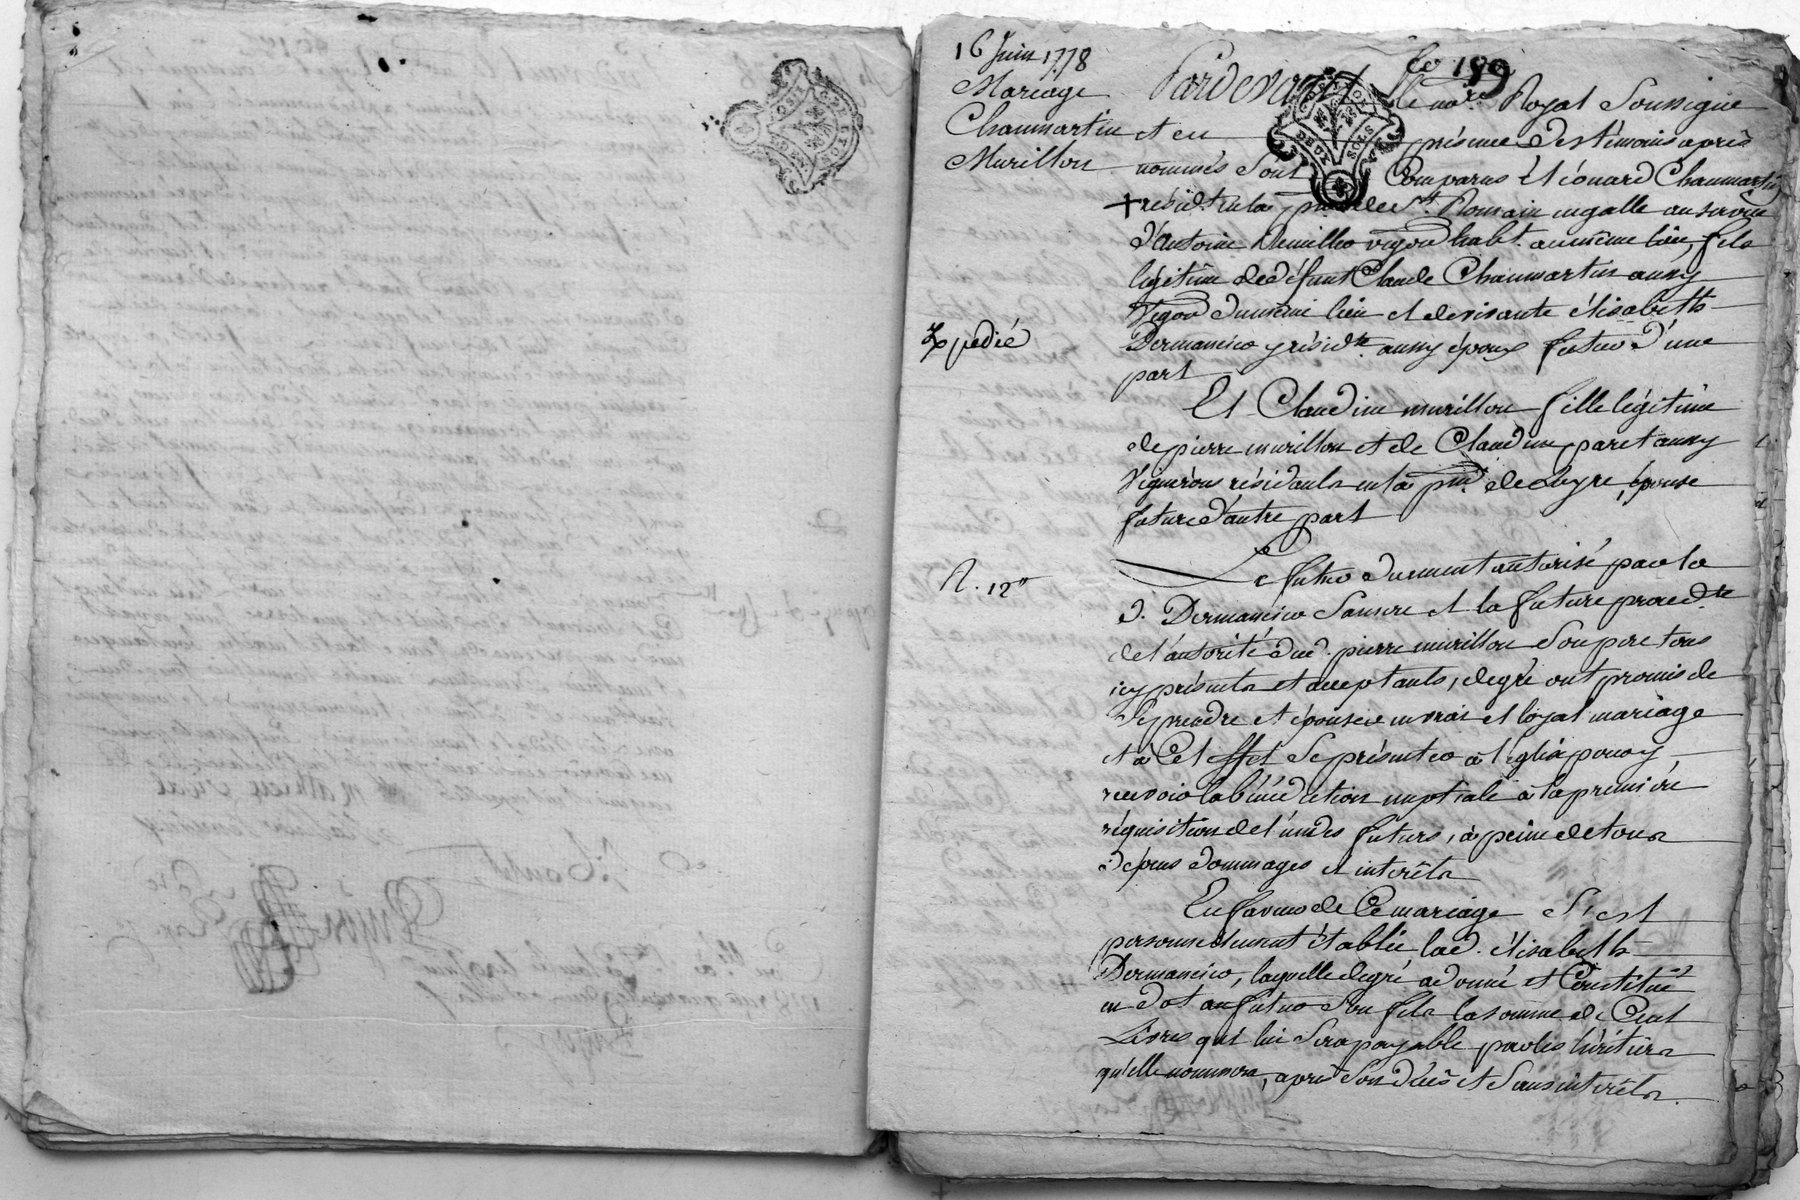 16 Juin 1778
Mariage
Chaumartin
Murillon
Expedié
R. 12"
fo 189
Pardevant le nore. Royal Soussigné
et en présence des témoins après
nommés sont Comparus Etiénne Chaumartin
+ résidt. en la psse de St. Romain en galle au service
d'antoine vigon habt. au même lieu, fils
légitime de défunt Claude Chaumartin aussy
Vigon du même lieu et de vivante élisabeth
Dermancieu y résidte. aussy époux futur d'une
part
Et Claudine murillon fille légitime
de pierre murillon et de Claudine paret aussy
Vignérons résidants en la psse. de Loyre, épouse
future d'autre part
Le futur dument autorisé par la
d. Dermancieu sa mere et la future procedte.
de l'autorité dud. pierre murillon son pere tous
icy présents et acceptants, de gré ont promis de
se prendre et épouser en vrai et loyal mariage
et à Cet effet se présenter à l'église pour y
recevoir la bénédiction nuptiale à la premiére
réquisition de l'un des futurs, à peine de tous
dépens dommages et intérêts
En faveur de Ce mariage s'est
personnellement établie lad. élisabeth
Dermancieu, laquelle de gré a donné et Constitué
en dot au futur son fils la somme de Cent
Livres qui lui sera payable par les héritiers
qu'elle nommera, après son décès et sans intérêts.
DEUX SOLS